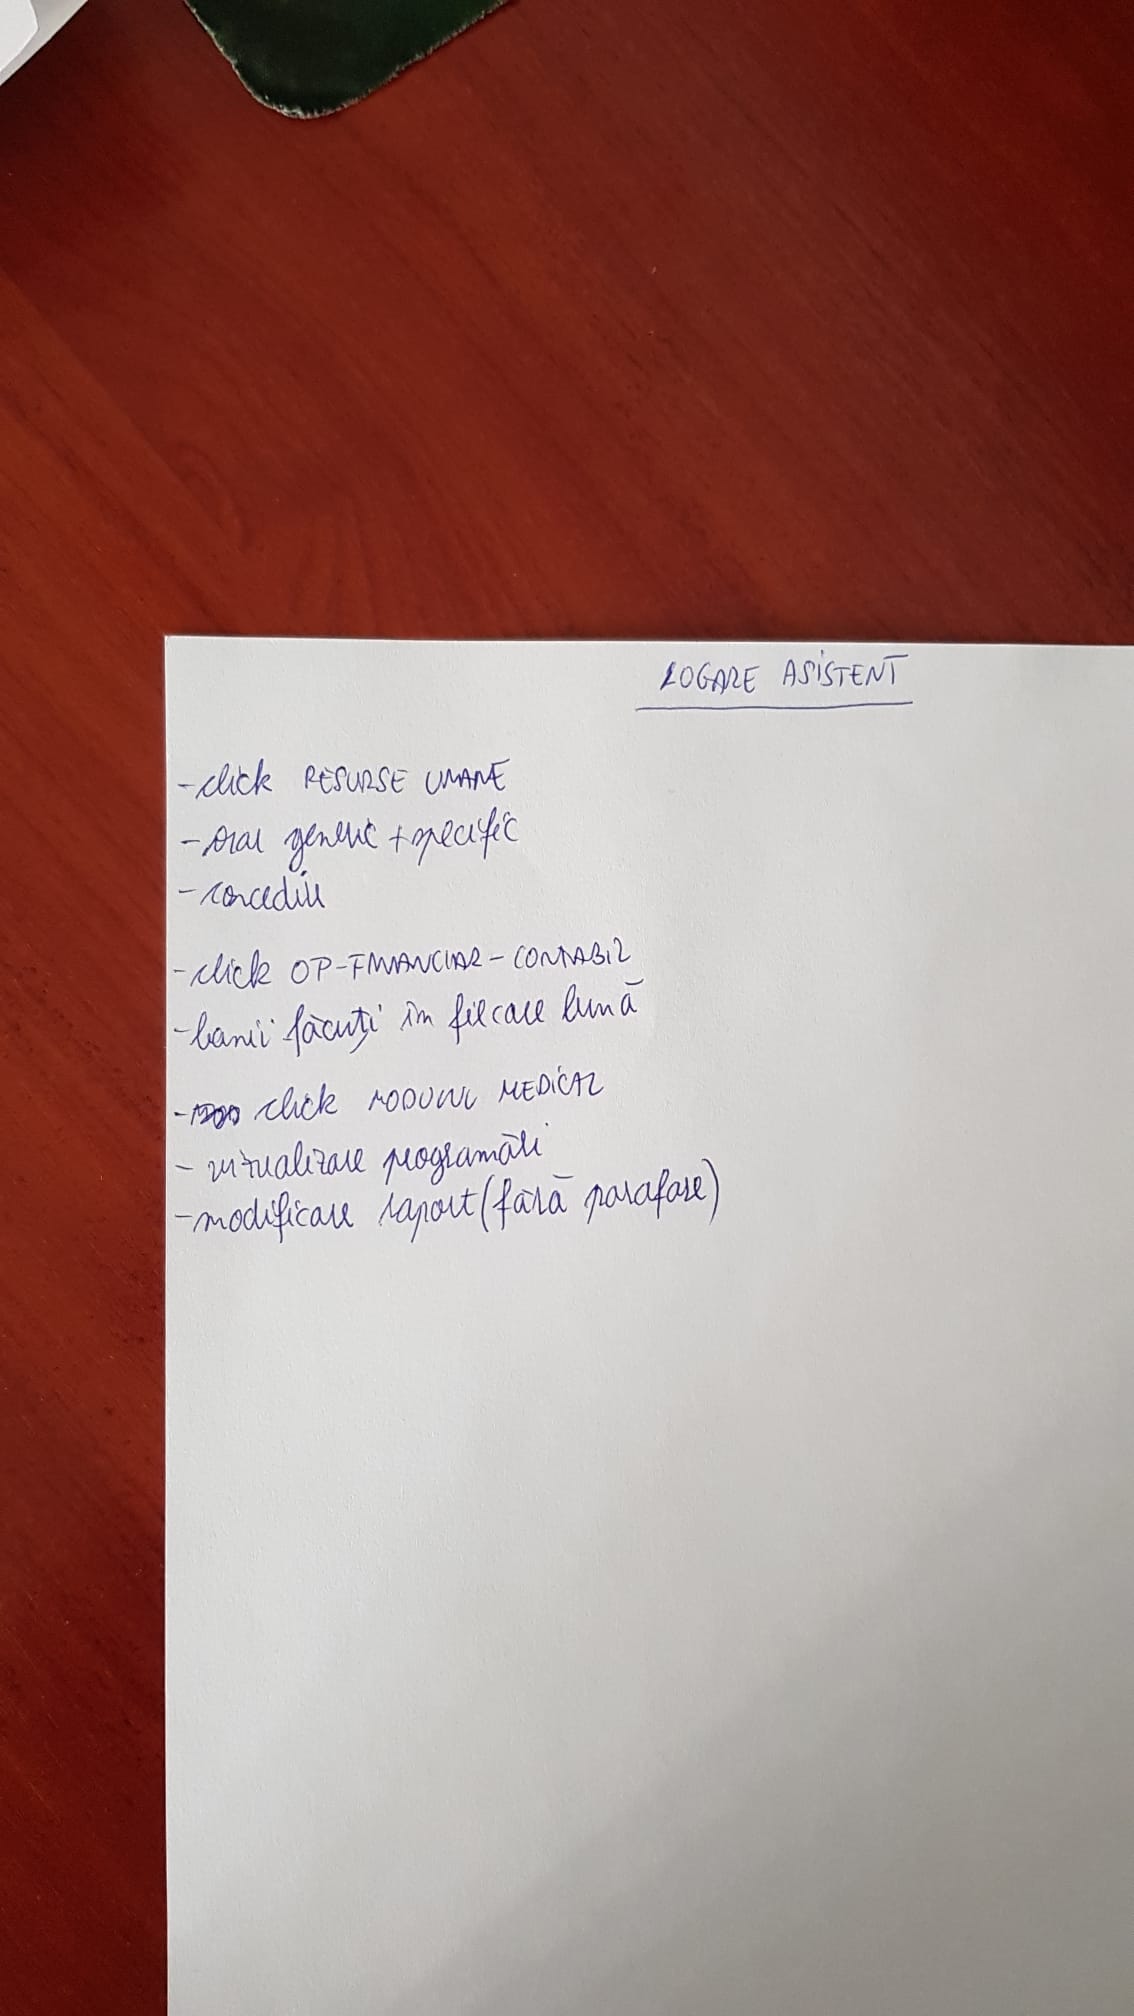 LOGARE ASISTENT
- click RESURSE UMANE
- orar generic + specific
- concediu
- click OP-FINANCIAR-CONTABIL
- banii făcuți în fiecare lună
- click MODUL MEDICAL
- vizualizare programări
- modificare raport (fără parafare)